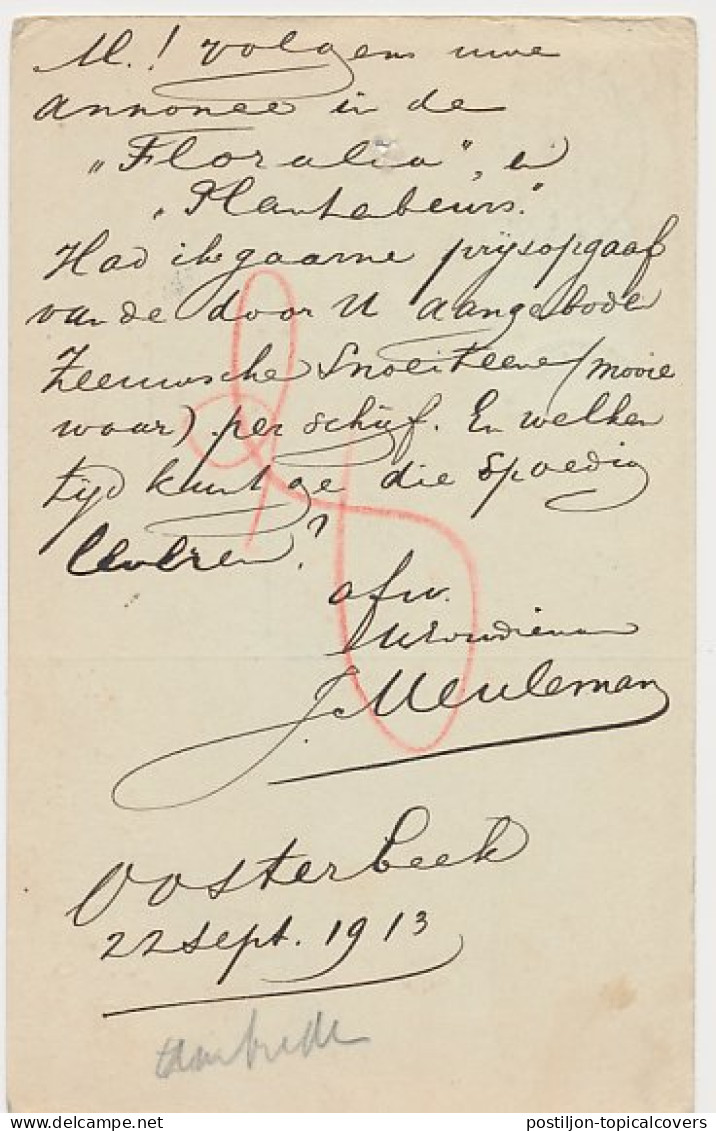 M.! volgens uwe
annonce in de
„Floralia", &
„Plantebeurs."
Had ik gaarne prijsopgaaf
van de door U aangeboden
Zeeuwsche Snoeiteene (mooie
waar) per schijf. En welken
tijd kunt ge die spoedig
leveren?
afw.
Uw dienaar
J. Meuleman
Oosterbeek
22 Sept. 1913
postiljon-topicalcovers